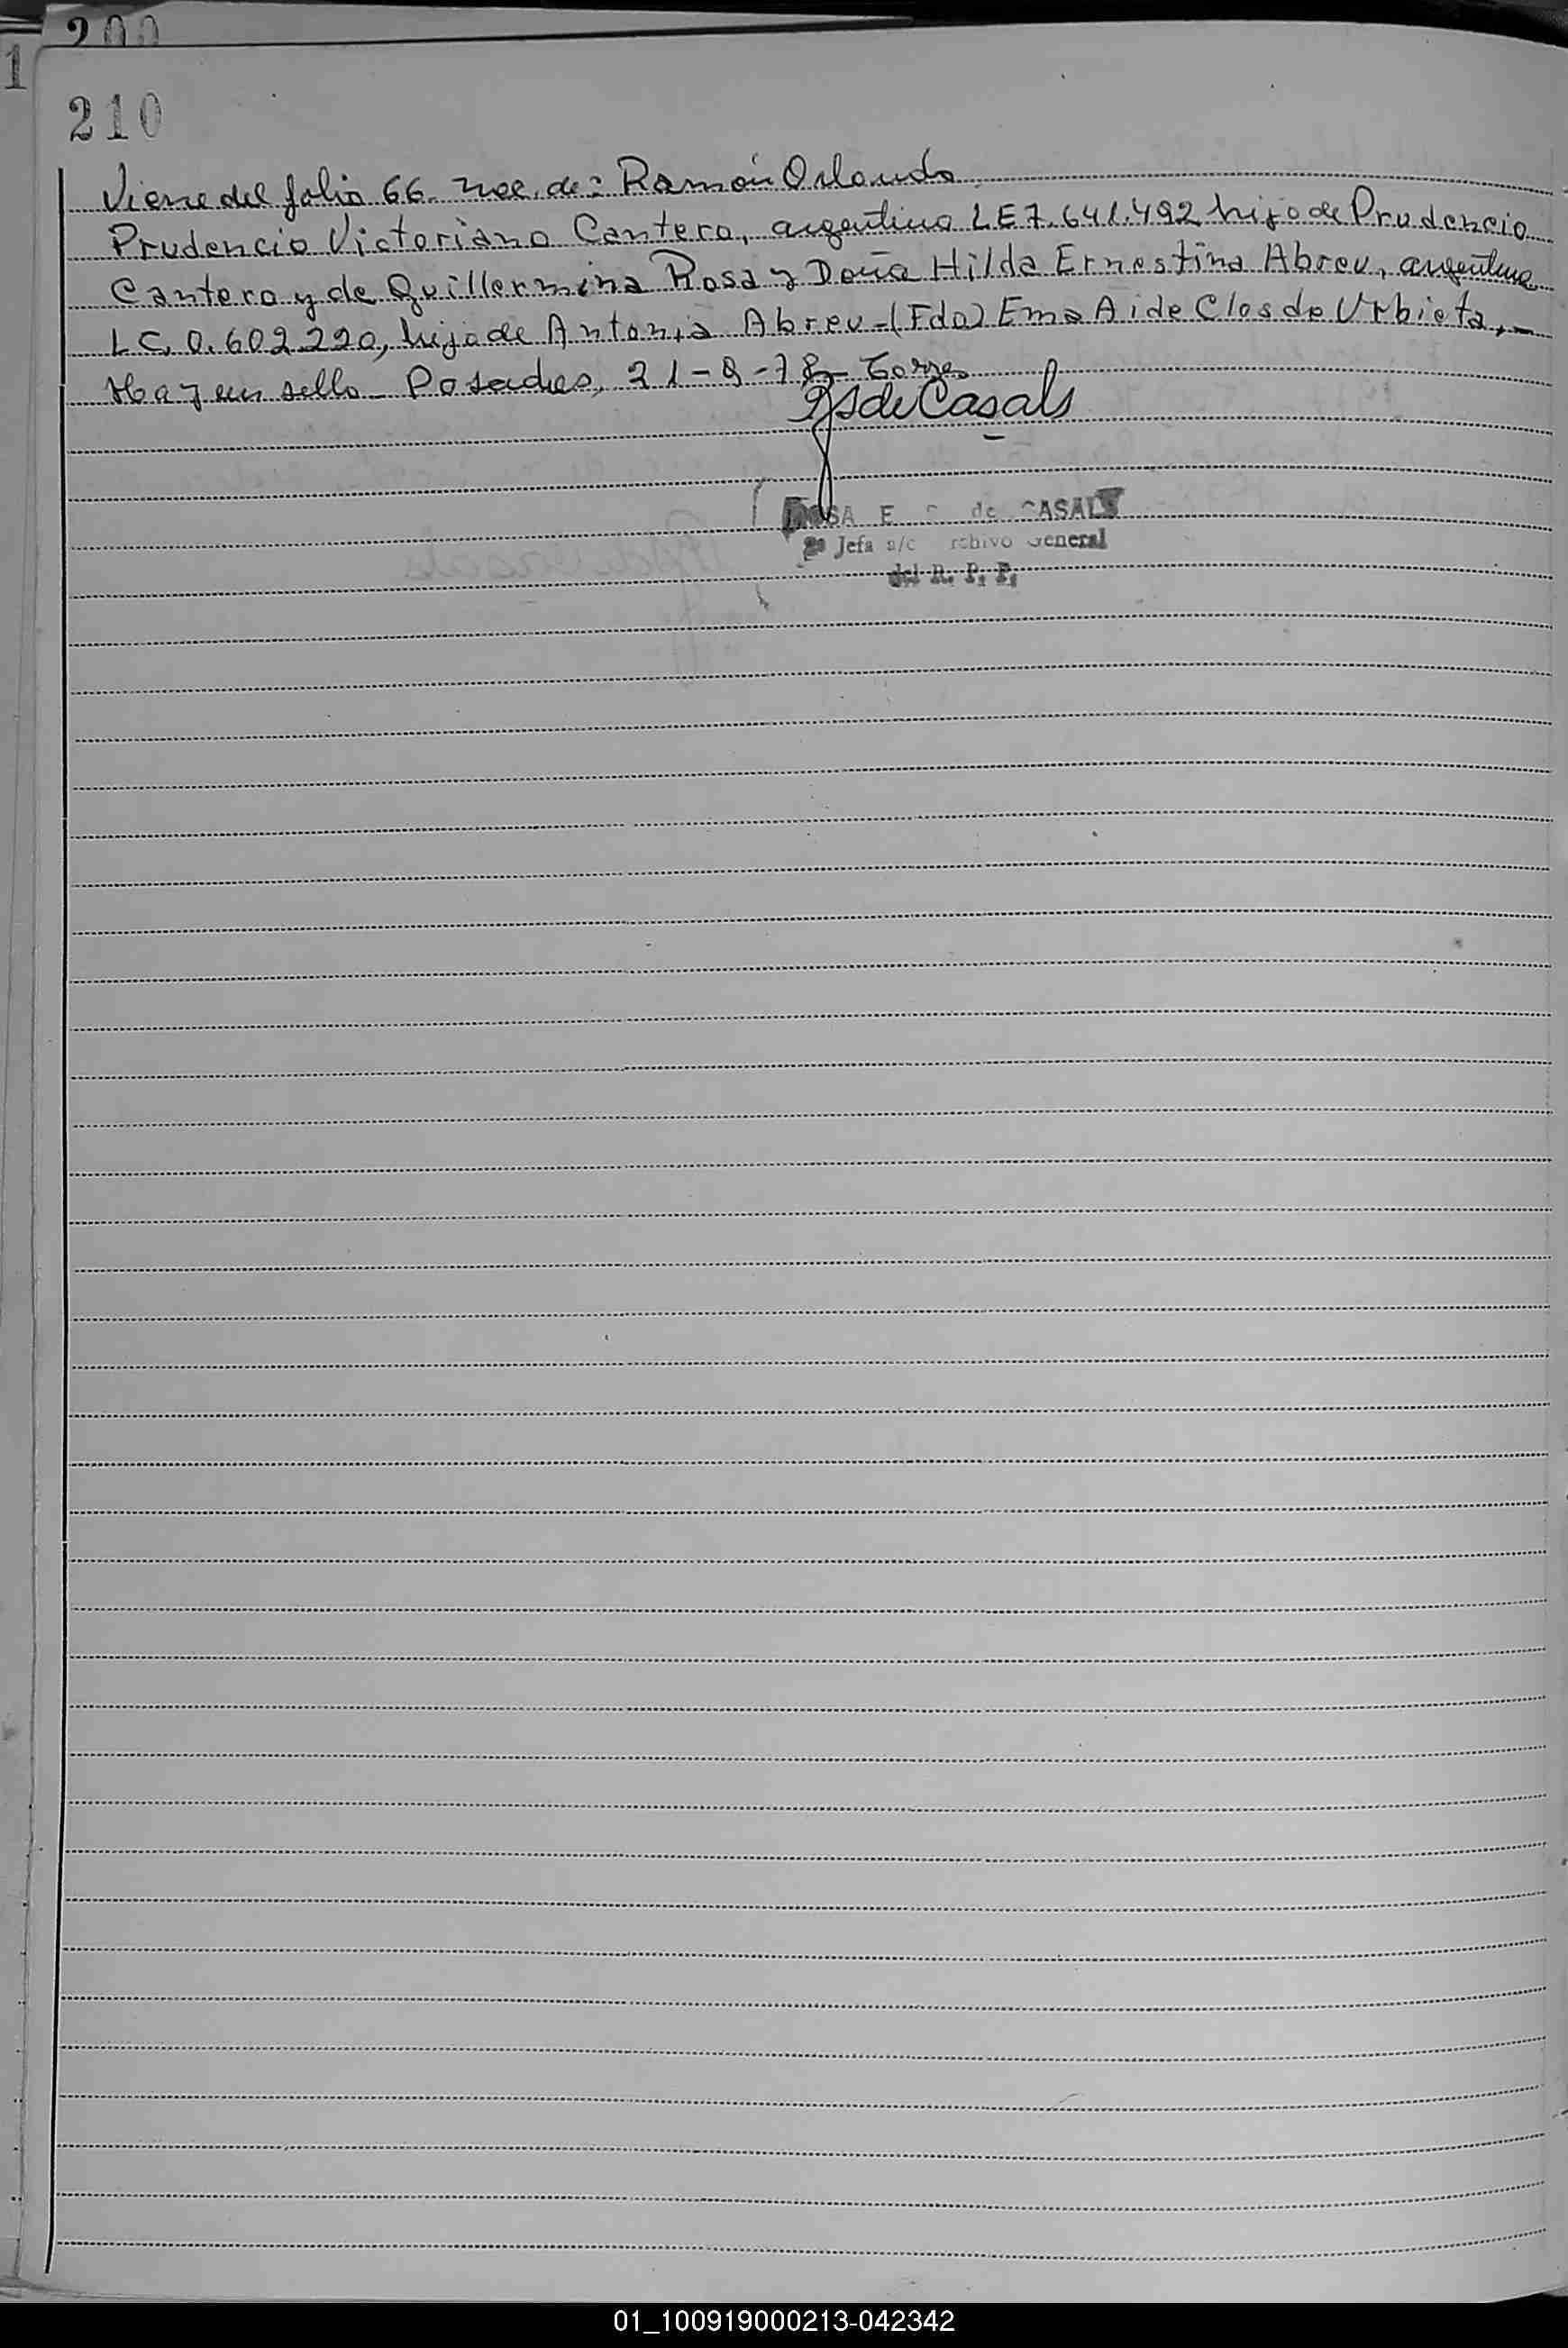 200
1
210
Viene del folio 66. nac. de: Ramón Orlando
Prudencio Victoriano Cantero, argentino LE 7.641.492 hijo de Prudencio
Cantero y de Guillermina Rosa y Doña Hilda Ernestina Abreu, argentina
LC. 0.602.220, hija de Antonia Abreu-(Fdo) Ema Aide Clos de Urbieta,-
Hay un sello- Posadas, 21-9-78- Torres
de Casals
ROSA E de CASALS
Jefa a/c Archivo General
del R. P. P.
01_100919000213-042342